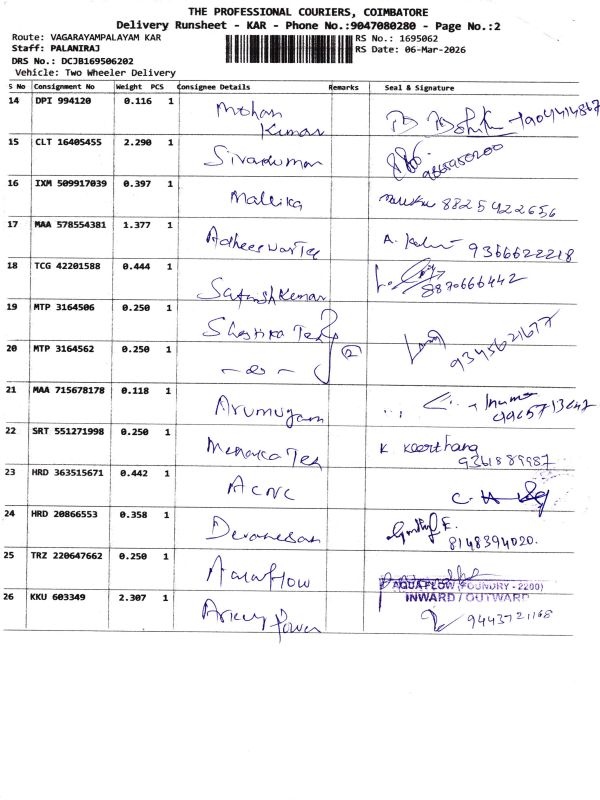 THE PROFESSIONAL COURIERS, COIMBATORE
Delivery Runsheet - KAR - Phone No.:9047080280 - Page No.:2
Route: VAGARAYAMPALAYAM KAR
RS No.: 1695062
Staff: PALANIRAJ
RS Date: 06-Mar-2026
DRS No.: DCJB169506202
Vehicle: Two Wheeler Delivery
S No Consignment No Weight PCS Consignee Details Remarks Seal & Signature
14 DPI 994120 0.116 1 Mohan Kumar
15 CLT 16405455 2.290 1 Sivakumar
16 IXM 509917039 0.397 1 Mallika 8825422656
17 MAA 578554381 1.377 1 Adheeswar Tex A. 9366622218
18 TCG 42201588 0.444 1 Satheesh Kumar 8870666442
19 MTP 3164506 0.250 1 Shastika Tex
20 MTP 3164562 0.250 1 - do - 2 9345621677
21 MAA 715678178 0.118 1 Arumugam
22 SRT 551271998 0.250 1 Menaka Tex K Keerthana 9361889987
23 HRD 363515671 0.442 1 ACNC
24 HRD 20866553 0.358 1 Devanesan 8148394020.
25 TRZ 220647662 0.250 1 Aquaflow
AQUAFLOW (FOUNDRY - 2200)
INWARD / OUTWARD
26 KKU 603349 2.307 1 Power 9443721168